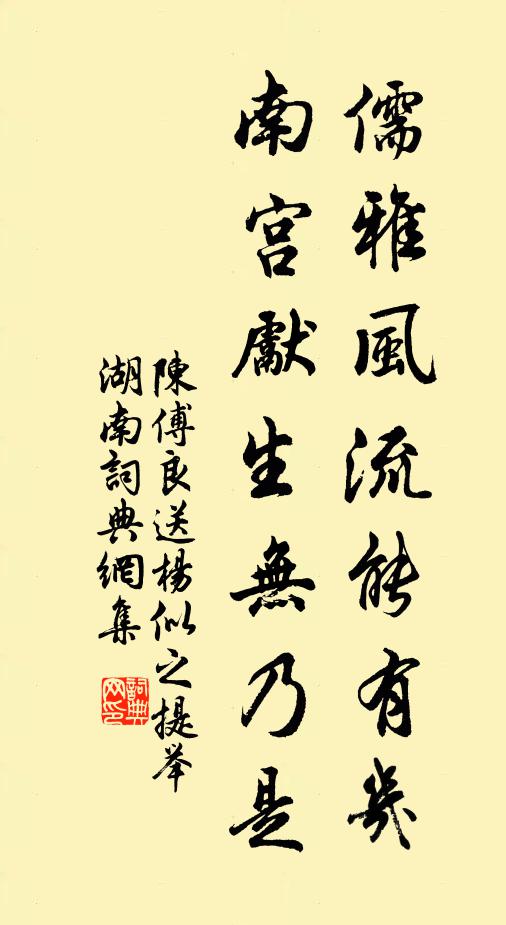 儒雅風流能有幾
南宫獻生無乃是
陳傅良送楊似之提举
湖南詞典網集
詞典
网印